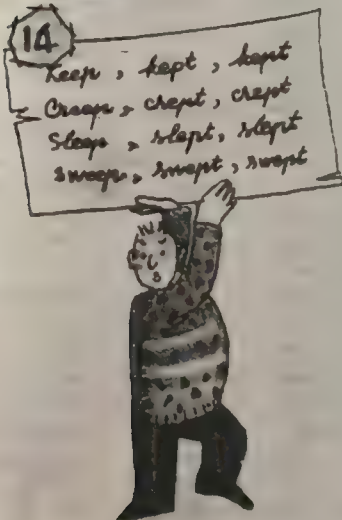 14
Keep, kept, kept
Creep, crept, crept
Sleep, slept, slept
Sweep, swept, swept